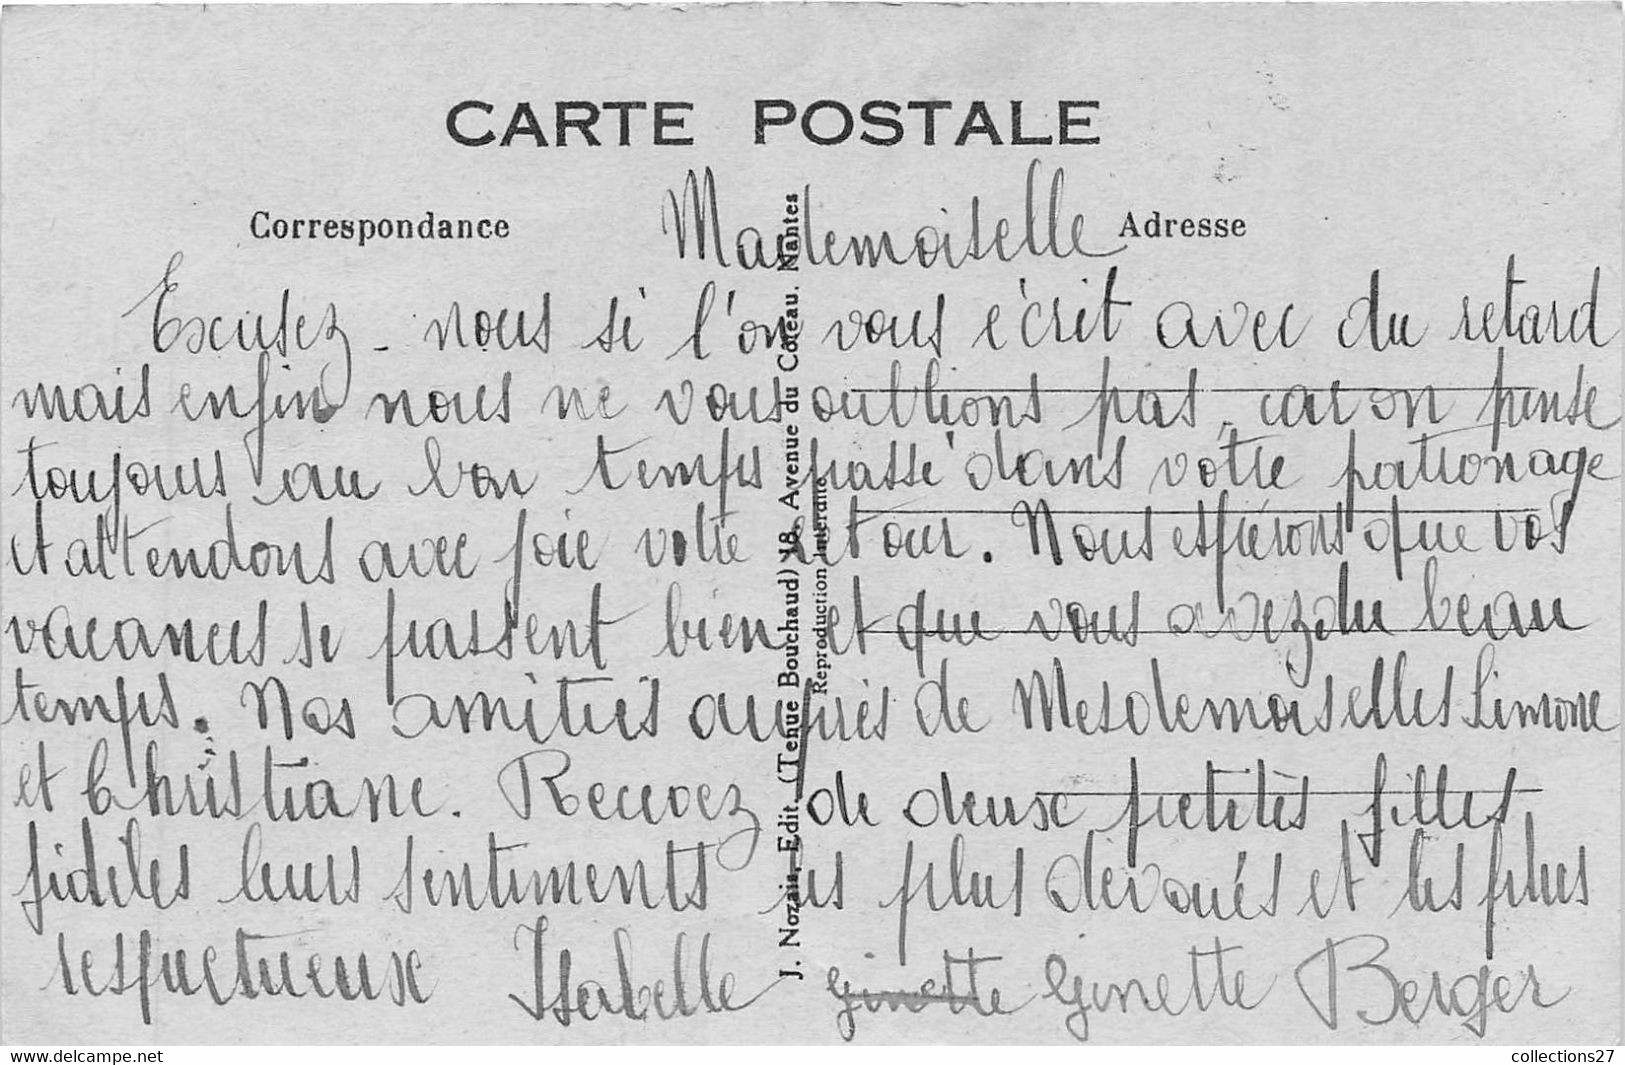 CARTE POSTALE
Correspondance
Adresse
Mademoiselle
Excusez-nous si l'on vous écrit avec du retard
mais enfin nous ne vous oublions pas, car on pense
toujours au bon temps passé dans votre patronage
et attendons avec joie votre retour. Nous espérons que vos
vacances se passent bien et que vous avez du beau
temps. Nos amitiés auprès de Mesdemoiselles Simone
et Christiane. Recevez de deux petites filles
fidèles leurs sentiments les plus dévoués et les plus
respectueux Isabelle Ginette Ginette Berger
J. Nozais, Edit. (Tenue Bouchaud) 18, Avenue du Coteau. Nantes
Reproduction Interdite
www.delcampe.net
collections27